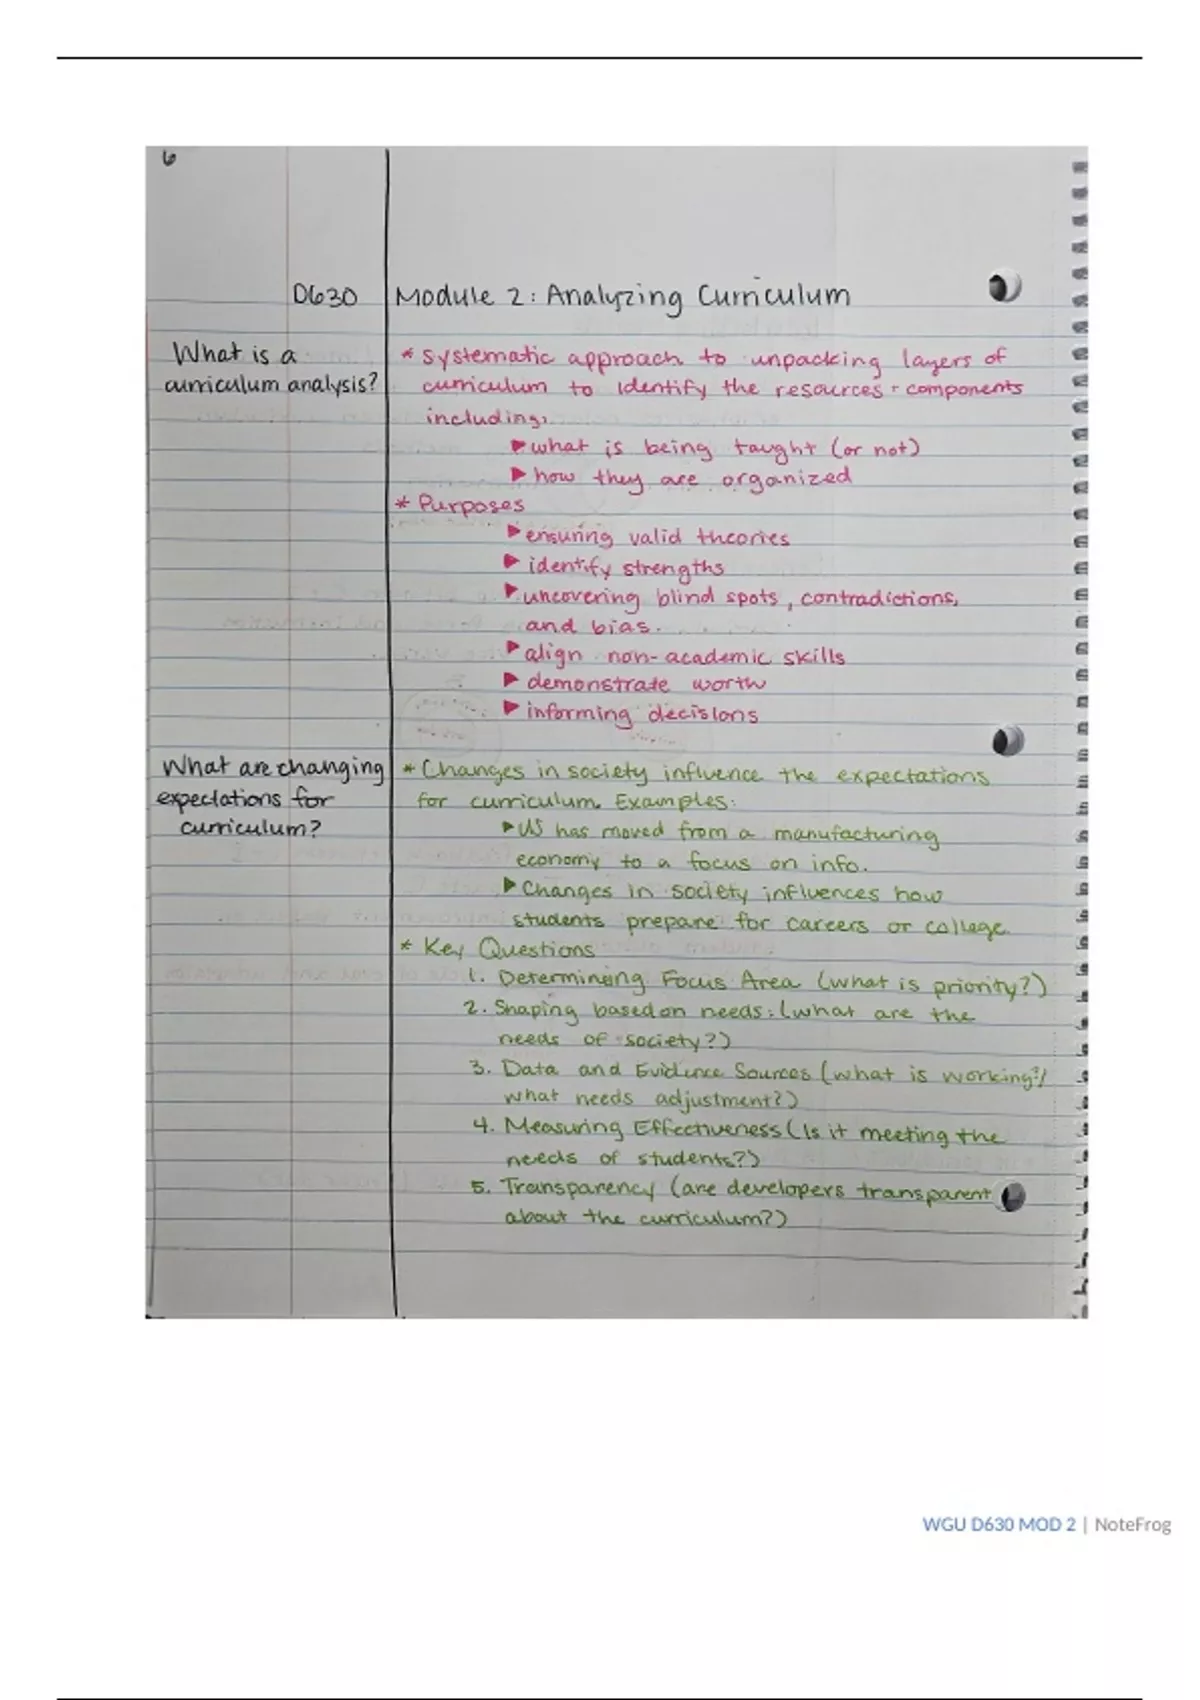 6
D630 Module 2: Analyzing Curriculum
What is a
curriculum analysis?
* systematic approach to unpacking layers of
curriculum to identify the resources + components
including:
▶ what is being taught (or not)
▶ how they are organized
* Purposes
▶ ensuring valid theories
▶ identify strengths
▶ uncovering blind spots, contradictions,
and bias.
▶ align non-academic skills
▶ demonstrate worth
▶ informing decisions
What are changing
expectations for
curriculum?
* Changes in society influence the expectations
for curriculum. Examples:
▶ US has moved from a manufacturing
economy to a focus on info.
▶ Changes in society influences how
students prepare for careers or college.
* Key Questions
1. Determining Focus Area (what is priority?)
2. Shaping based on needs: (what are the
needs of society?)
3. Data and Evidence Sources (what is working?/
what needs adjustment?)
4. Measuring Effectiveness (Is it meeting the
needs of students?)
5. Transparency (are developers transparent
about the curriculum?)
WGU D630 MOD 2 | NoteFrog